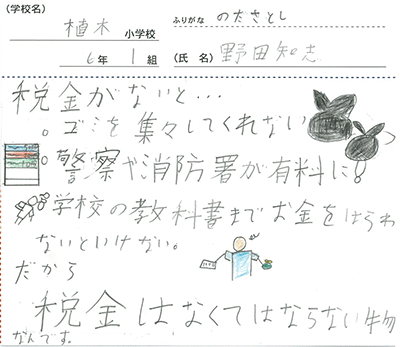 (学校名) 植木 小学校
ふりがな のださとし
6年 1組 (氏名) 野田知志
税金がないと…
。ゴミを集々してくれない
。警察や消防署が有料に!
。学校の教科書までお金をはらわ
ないといけない。
だから
税金はなくてはならない物
なんです。